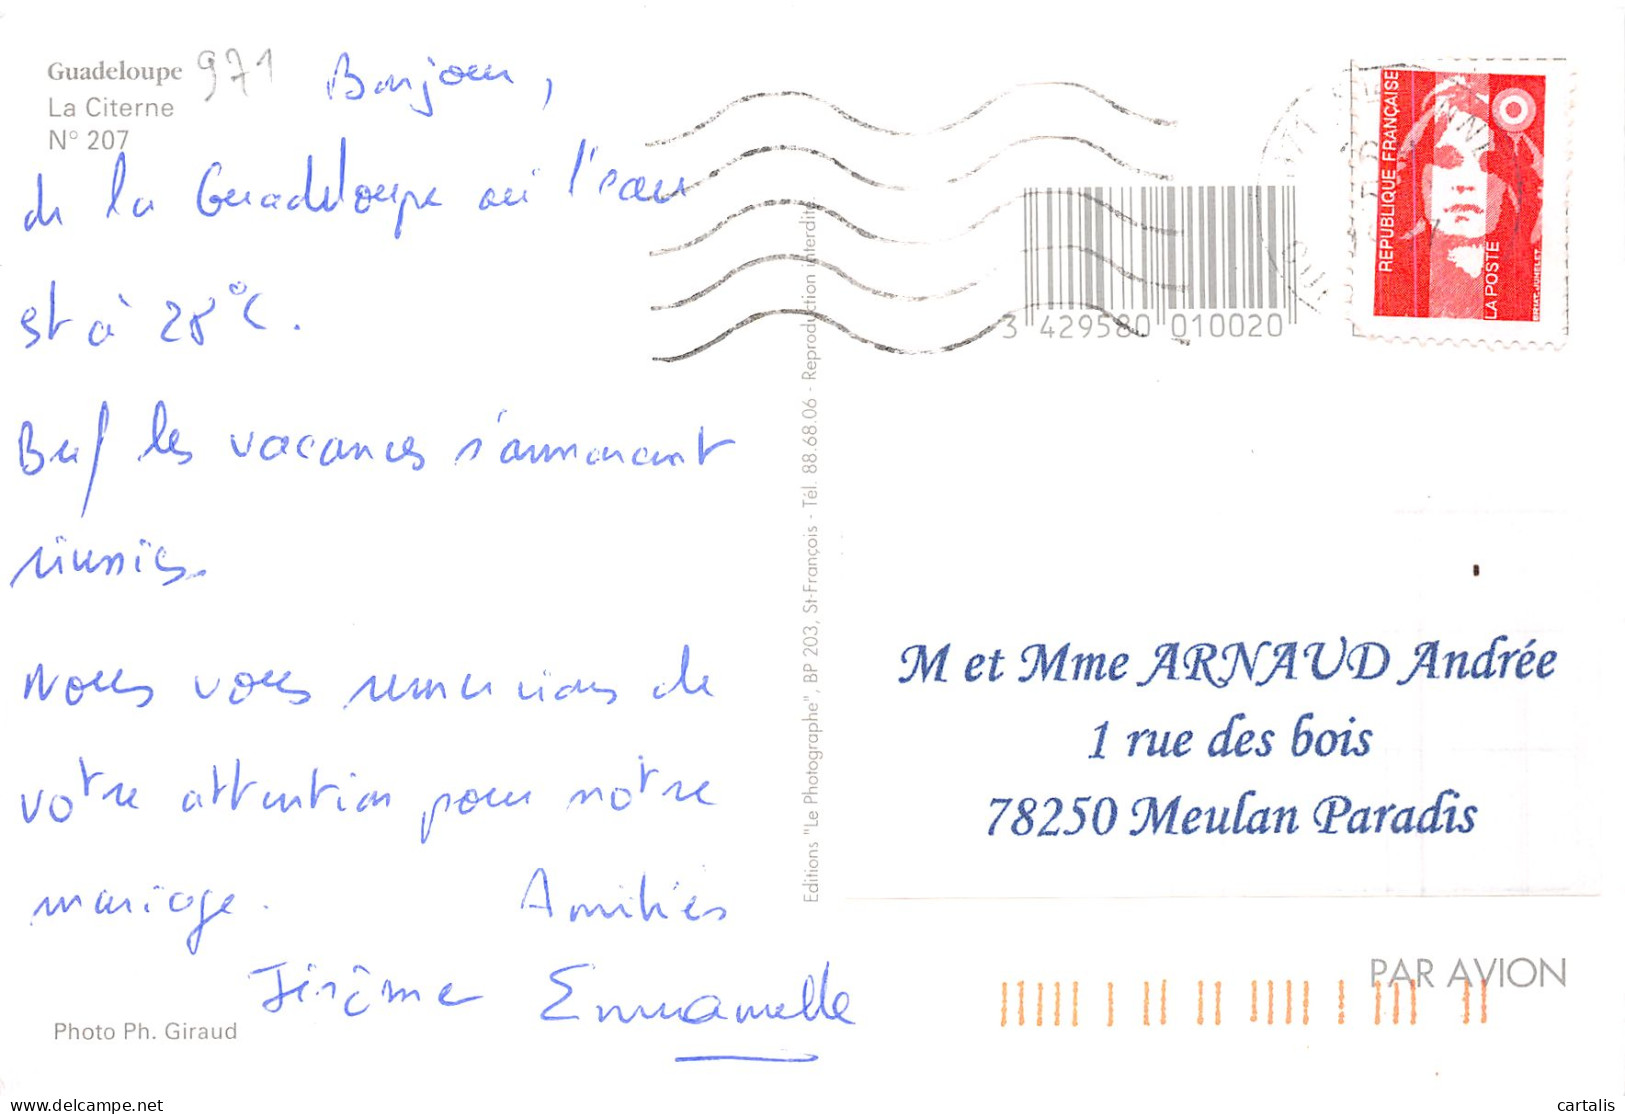 Guadeloupe
La Citerne
N° 207
971
Bonjour,
de la Guadeloupe où l'eau
est à 28°C.
Bref les vacances s'annoncent
réussies.
Nous vous remercions de
votre attention pour notre
mariage. Amitiés
Jérôme Emmanuelle
Photo Ph. Giraud
Editions "Le Photographe", BP 203, St-François - Tél. 88.68.06 - Reproduction interdite
3 429580 010020
REPUBLIQUE FRANÇAISE
LA POSTE
M et Mme ARNAUD Andrée
1 rue des bois
78250 Meulan Paradis
PAR AVION
delcampe.net
cartalis